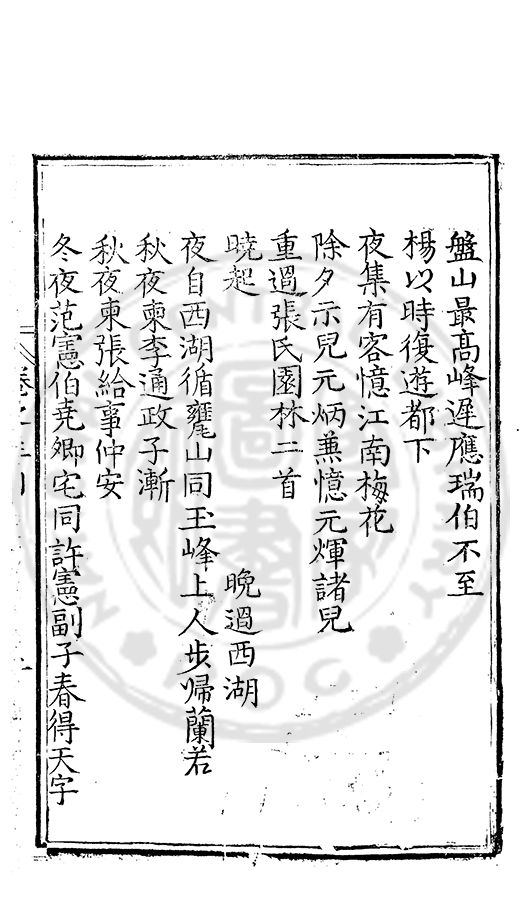 盤山最高峰遲應瑞伯不至
楊以時復遊都下
夜集有客憶江南梅花
除夕示兒元炳蒹憶元煇諸兒
重過張氏園林二首
曉起　晚過西湖
夜自西湖循甕山同玉峰上人步歸蘭若
秋夜柬李通政子漸
秋夜柬張給事仲安
冬夜范憲伯堯卿宅同許憲副子春得天字